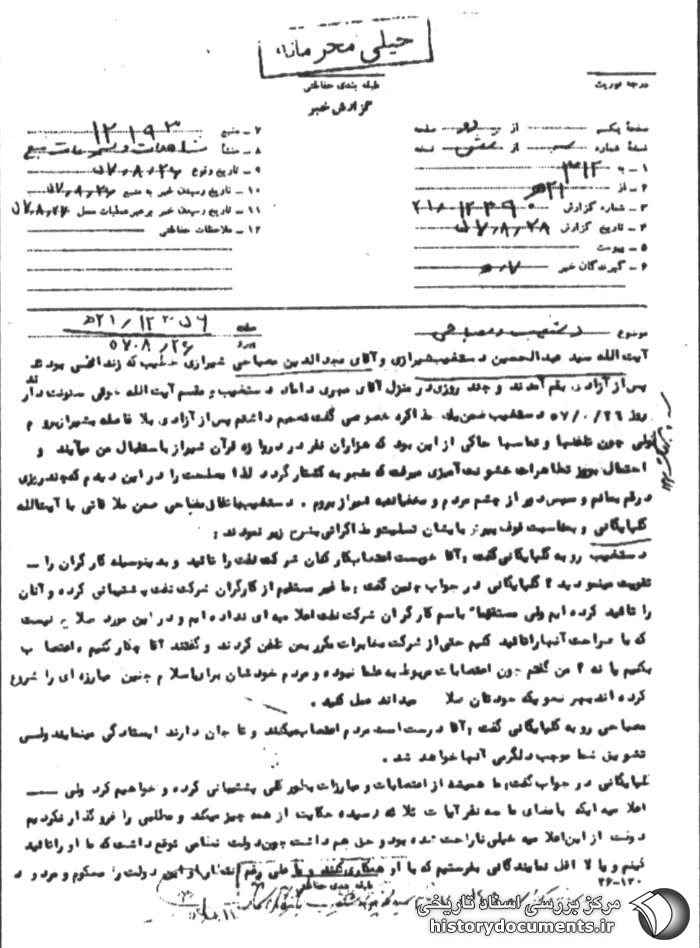 خیلی محرمانه
طبقه بندی حفاظتی
درجه فوریت
گزارش خبر
صفحهٔ یکم از دو صفحه
نسخهٔ شماره از شش نسخه
۱ - به ۳۱۲
۲ - از ۲۱هـ
۳ - شماره گزارش ۲۱/۱۲۴۹۰هـ
۴ - تاریخ گزارش ۵۷/۸/۲۸
۵ - پیوست
۶ - گیرندگان خبر
۷ - منبع ۱۲۱۹۳
۸ - منشأ مشاهدات و مسموعات منبع
۹ - تاریخ وقوع ۵۷/۸/۲۶
۱۰ - تاریخ رسیدن خبر به منبع ۵۷/۸/۲۶
۱۱ - تاریخ رسیدن خبر به رهبر عملیات محل ۵۷/۸/۲۷
۱۲ - ملاحظات حفاظتی
موضوع دستغیب و مصباحی
۵۷/۸/۲۶
آیت الله سید عبدالحسین دستغیب شیرازی و آقای مجدالدین مصباحی شیرازی خطیب که زندانی بودند
پس از آزادی بقم آمدند و چند روزی در منزل آقای میری داماد دستغیب و مقسم آیت الله خوئی سکونت دارند
روز ۵۷/۰/۲۶ دستغیب ضمن یک مذاکره خصوصی گفت تصمیم داشتم پس از آزادی بلا فاصله بشیراز بروم
ولی چون تلفنها و تماسها حاکی از این بود که هزاران نفر در دروازه قرآن شیراز باستقبال من میآیند و
احتمال بروز تظاهرات خشونت آمیزی میرفت که منجر به کشتار گردد لذا مصلحت را در این دیدم که چند روزی
در قم بمانم و سپس دور از چشم مردم و مخفیانه شیراز بروم . دستغیب باتفاق مصباحی ضمن ملاقاتی با آیت الله
گلپایگانی و بمناسبت فوت پسر بایشان تسلیت و مذاکراتی بشرح زیر نمودند :
دستغیب رو به گلپایگانی گفت : آقا خوبست اعتصاب کارکنان شرکت نفت را تائید و بدینوسیله کارگران را
تقویت مینمودید ؟ گلپایگانی در جواب چنین گفت : ما غیر مستقیم از کارگران شرکت نفت پشتیبانی کرده و آنان
را تائید کرده ایم ولی مستقیما" باسم کارگران شرکت نفت اعلامیه ای نداده ایم و در این مورد صلاح نیست
که با صراحت آنها را تائید کنیم حتی از شرکت مخابرات مکرر بمن تلفن کردند و گفتند آقا چکار کنیم ، اعتصاب
بکنیم یا نه ؟ من گفتم چون اعتصابات مربوط به علما نبوده و مردم خودشان برای اسلام چنین مبارزه ای را شروع
کرده اند بهر نحویکه خودتان صلاح میدانید عمل کنید .
مصباحی رو به گلپایگانی گفت : آقا درست است مردم اعتصاب میکنند و تا جان دارند ایستادگی مینمایند ولی
تشویق شما موجب دلگرمی آنها خواهد شد .
گلپایگانی در جواب گفت : ما همیشه از اعتصابات و مبارزات بطور کلی پشتیبانی کرده و خواهیم کرد ولی
اعلامیه ایکه بامضای ما سه نفر آیات ثلاثه رسیده حکایت از همه چیز میکند و مطلبی را فروگذار نکردیم
دولت از این اعلامیه خیلی ناراحت شده بود و حق هم داشت چون دولت نظامی توقع داشت که ما او را تائید
کنیم و یا لا اقل نمایندگانی بفرستیم که با او همکاری کنند و ما علی رغم انتظار او این دولت را محکوم و مردود
طبقه بندی حفاظتی
۲۶-۱۳۰
مرکز بررسی اسناد تاریخی
historydocuments.ir